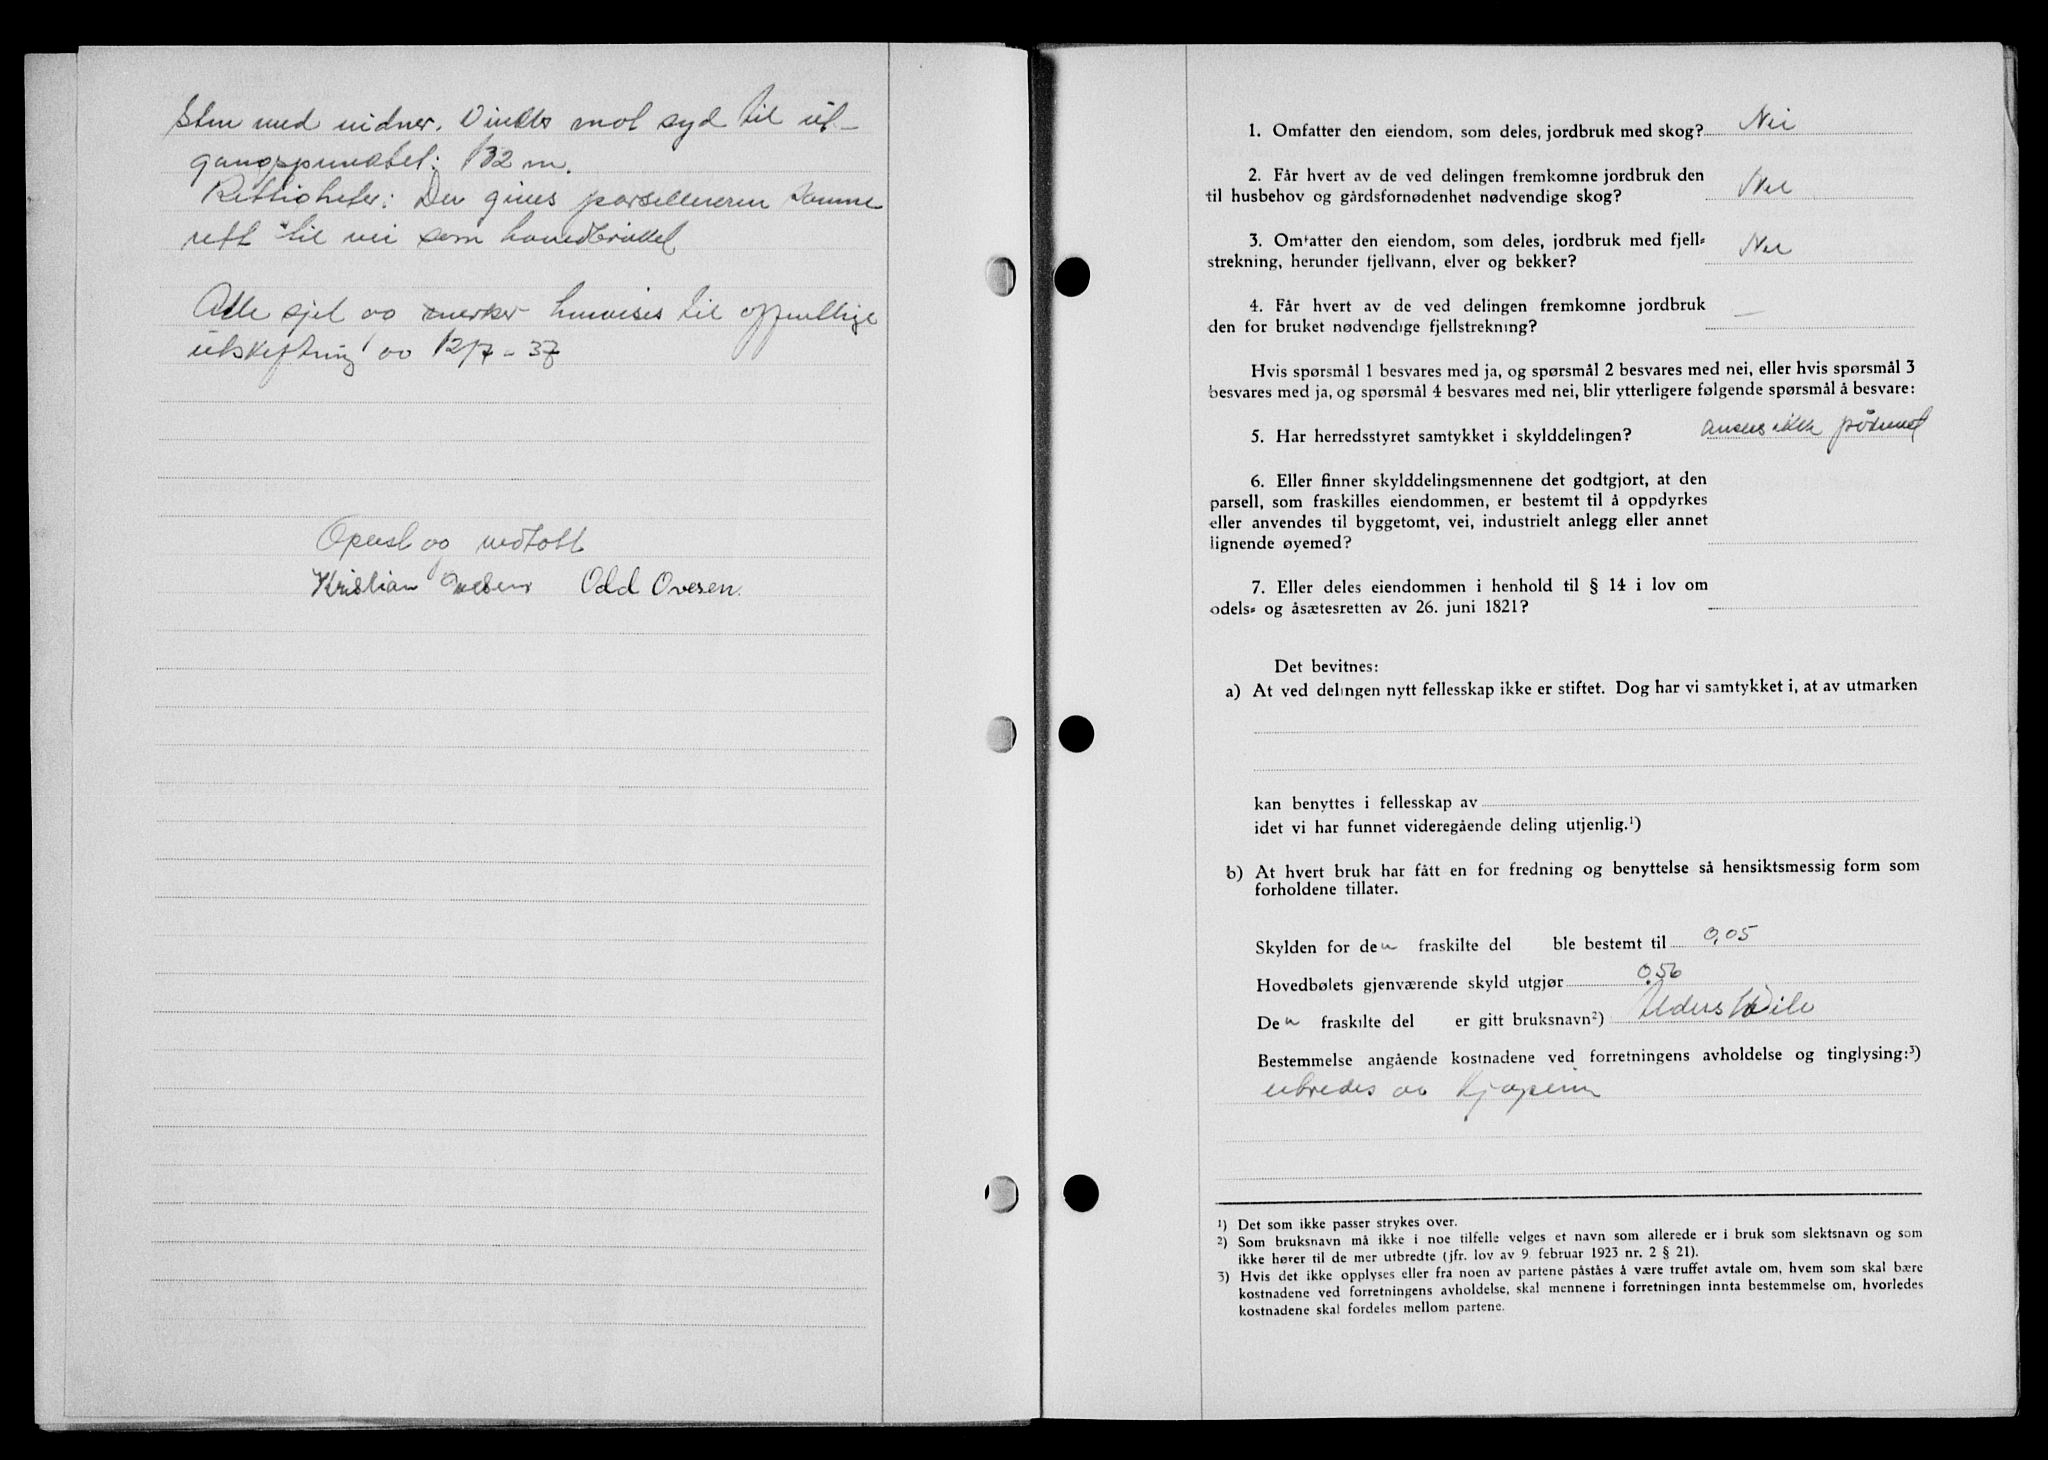 Sten med vidner. Vinkler mot syd til ut-
gangspunktet: 132 m.
Rettigheter: Der gives parselleieren samme
rett til vei som hovedbruket
Alle sjel og merker henvises til offentlige
utskiftning av 12/7 - 37
Oplest og vedtatt
Kristian Ovesen Odd Ovesen.
1. Omfatter den eiendom, som deles, jordbruk med skog? Nei
2. Får hvert av de ved delingen fremkomne jordbruk den
til husbehov og gårdsfornødenhet nødvendige skog? Nei
3. Omfatter den eiendom, som deles, jordbruk med fjell-
strekning, herunder fjellvann, elver og bekker? Nei
4. Får hvert av de ved delingen fremkomne jordbruk
den for bruket nødvendige fjellstrekning? —
Hvis spørsmål 1 besvares med ja, og spørsmål 2 besvares med nei, eller hvis spørsmål 3
besvares med ja, og spørsmål 4 besvares med nei, blir ytterligere følgende spørsmål å besvare:
5. Har herredsstyret samtykket i skylddelingen? ansees ikke påkrevet
6. Eller finner skylddelingsmennene det godtgjort, at den
parsell, som fraskilles eiendommen, er bestemt til å oppdyrkes
eller anvendes til byggetomt, vei, industrielt anlegg eller annet
lignende øyemed?
7. Eller deles eiendommen i henhold til § 14 i lov om
odels- og åsætesretten av 26. juni 1821?
Det bevitnes:
a) At ved delingen nytt fellesskap ikke er stiftet. Dog har vi samtykket i, at av utmarken
kan benyttes i fellesskap av
idet vi har funnet videregående deling utjenlig.¹)
b) At hvert bruk har fått en for fredning og benyttelse så hensiktsmessig form som
forholdene tillater.
Skylden for den fraskilte del ble bestemt til 0,05
Hovedbølets gjenværende skyld utgjør 0,56
Den fraskilte del er gitt bruksnavn²)
Bestemmelse angående kostnadene ved forretningens avholdelse og tinglysing:³)
utredes av kjøperen
¹) Det som ikke passer strykes over.
²) Som bruksnavn må ikke i noe tilfelle velges et navn som allerede er i bruk som slektsnavn og som
ikke hører til de mer utbredte (jfr. lov av 9. februar 1923 nr. 2 § 21).
³) Hvis det ikke opplyses eller fra noen av partene påståes å være truffet avtale om, hvem som skal bære
kostnadene ved forretningens avholdelse, skal mennene i forretningen innta bestemmelse om, hvorledes
kostnadene skal fordeles mellom partene.